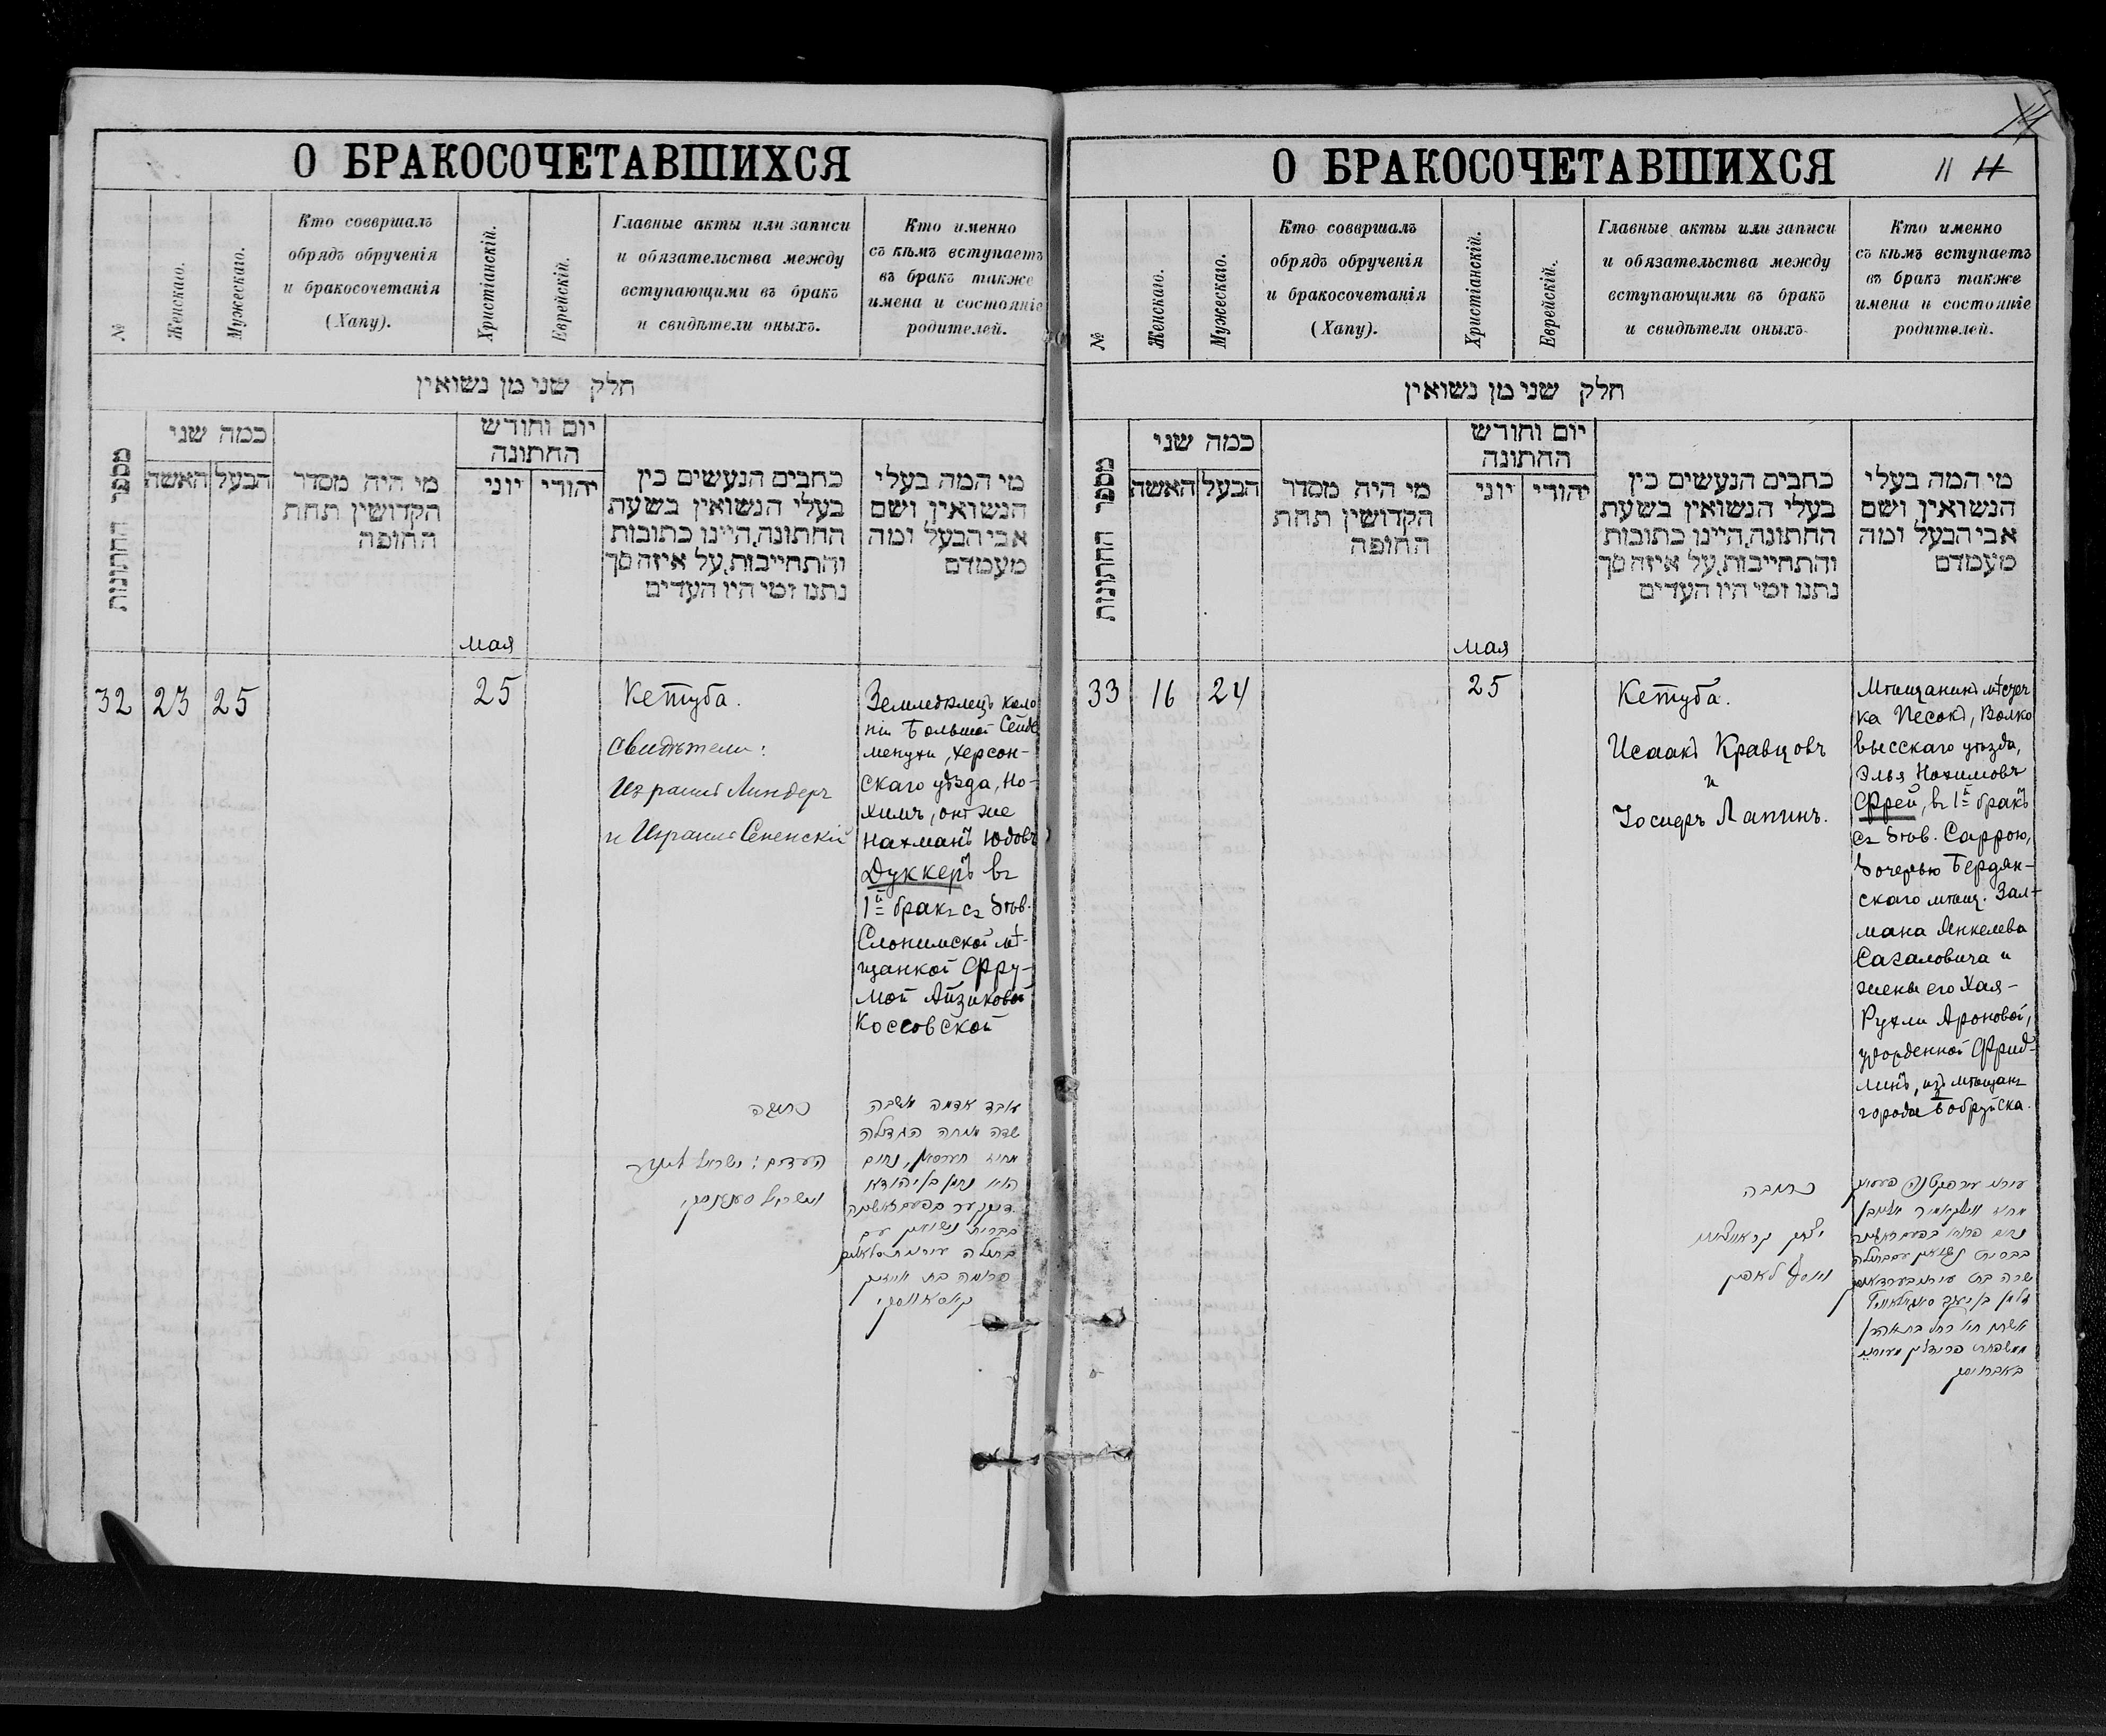 О БРАКОСОЧЕТАВШИХСЯ
№
Женскаго.
Мужескаго.
Кто соверщалъ
обрядъ обрученія
и бракосочетанія
(Хапу).
Христіанскій.
Еврейскій.
Главные акты или записи
и обязательства между
вступающими въ бракъ
и свидѣтели оныхъ.
Кто именно
съ кѣмъ вступаетъ
въ бракъ также
имена и состояніе
родителей.
חלק שני מן נשואין
מספר החתונות
כמה שני
האשה
הבעל
מי היה מסדר
הקדושין תחת
החופה
יום וחודש
החתונה
יוני
יהודי
כתבים הנעשים בין
בעלי הנשואין בשעת
החתונה,היינו כתובות
והתחייבות,על איזה סך
נתנו ומי היו העדים
מי המה בעלי
הנשואין ושם
אבי הבעל ומה
מעמדם
мая
32
23
25
25
Кетуба.
свидѣтели:
Израиль Линдеръ
и Израиль Сененскій
Земледѣлецъ коло
ніи Большой Сейде
менухи, Херсон-
скаго уѣзда, Но-
химъ, онъ же
Нахманъ Юдовъ
Дуккеръ въ
1й бракъ съ дѣв.
Слонимской мѣ-
щанкой Фру-
мой Айзиковой
Коссовской
כתובה
העדים: ישראל לינדער
וישראל סענענסקי
עובד אדמה מושבה
שדה מנוחה הגדולה
מחוז חערסאן, נחום
הוא נחמן בן יהודא
דוקקער בפעם ראשונה
בברית נשואין עם
בתולה
פרומה בת אייזיק
קאסאווסקי
О БРАКОСОЧЕТАВШИХСЯ
11
№
Женскаго.
Мужескаго.
Кто соверщалъ
обрядъ обрученія
и бракосочетанія
(Хапу).
Христіанскій.
Еврейскій.
Главные акты или записи
и обязательства между
вступающими въ бракъ
и свидѣтели оныхъ.
Кто именно
съ кѣмъ вступаетъ
въ бракъ также
имена и состояніе
родителей.
חלק שני מן נשואין
מספר החתונות
כמה שני
האשה
הבעל
מי היה מסדר
הקדושין תחת
החופה
יום וחודש
החתונה
יוני
יהודי
כתבים הנעשים בין
בעלי הנשואין בשעת
החתונה,היינו כתובות
והתחייבות,על איזה סך
נתנו ומי היו העדים
מי המה בעלי
הנשואין ושם
אבי הבעל ומה
מעמדם
мая
33
16
24
25
Кетуба.
Исаакъ Кравцовъ
и
Іосифъ Лапинъ.
Мѣщанинъ мѣстеч
ка Песокъ, Волко
высскаго уѣзда,
Элья Нохимовъ
Фрей, въ 1й бракъ
съ дѣв. Саррою,
дочерью Бердян-
скаго мѣщ. Зал-
мана Янкелева
Сагаловича и
жены его Хая-
Рухли Ароновой,
урожденной Фрид-
линъ, изъ мѣщанъ
города Бобруйска.
כתובה
יצחק קראווצאוו
ויוסף לאפין
נחום פריי בפעם ראשונה
בברית נשואין עם בתולה
זלמן בן יעקב סאגאלאוויץ
אשתו חיה רחל בת אהרן
ממשפחת פרידלין מעירוני
באברויסק